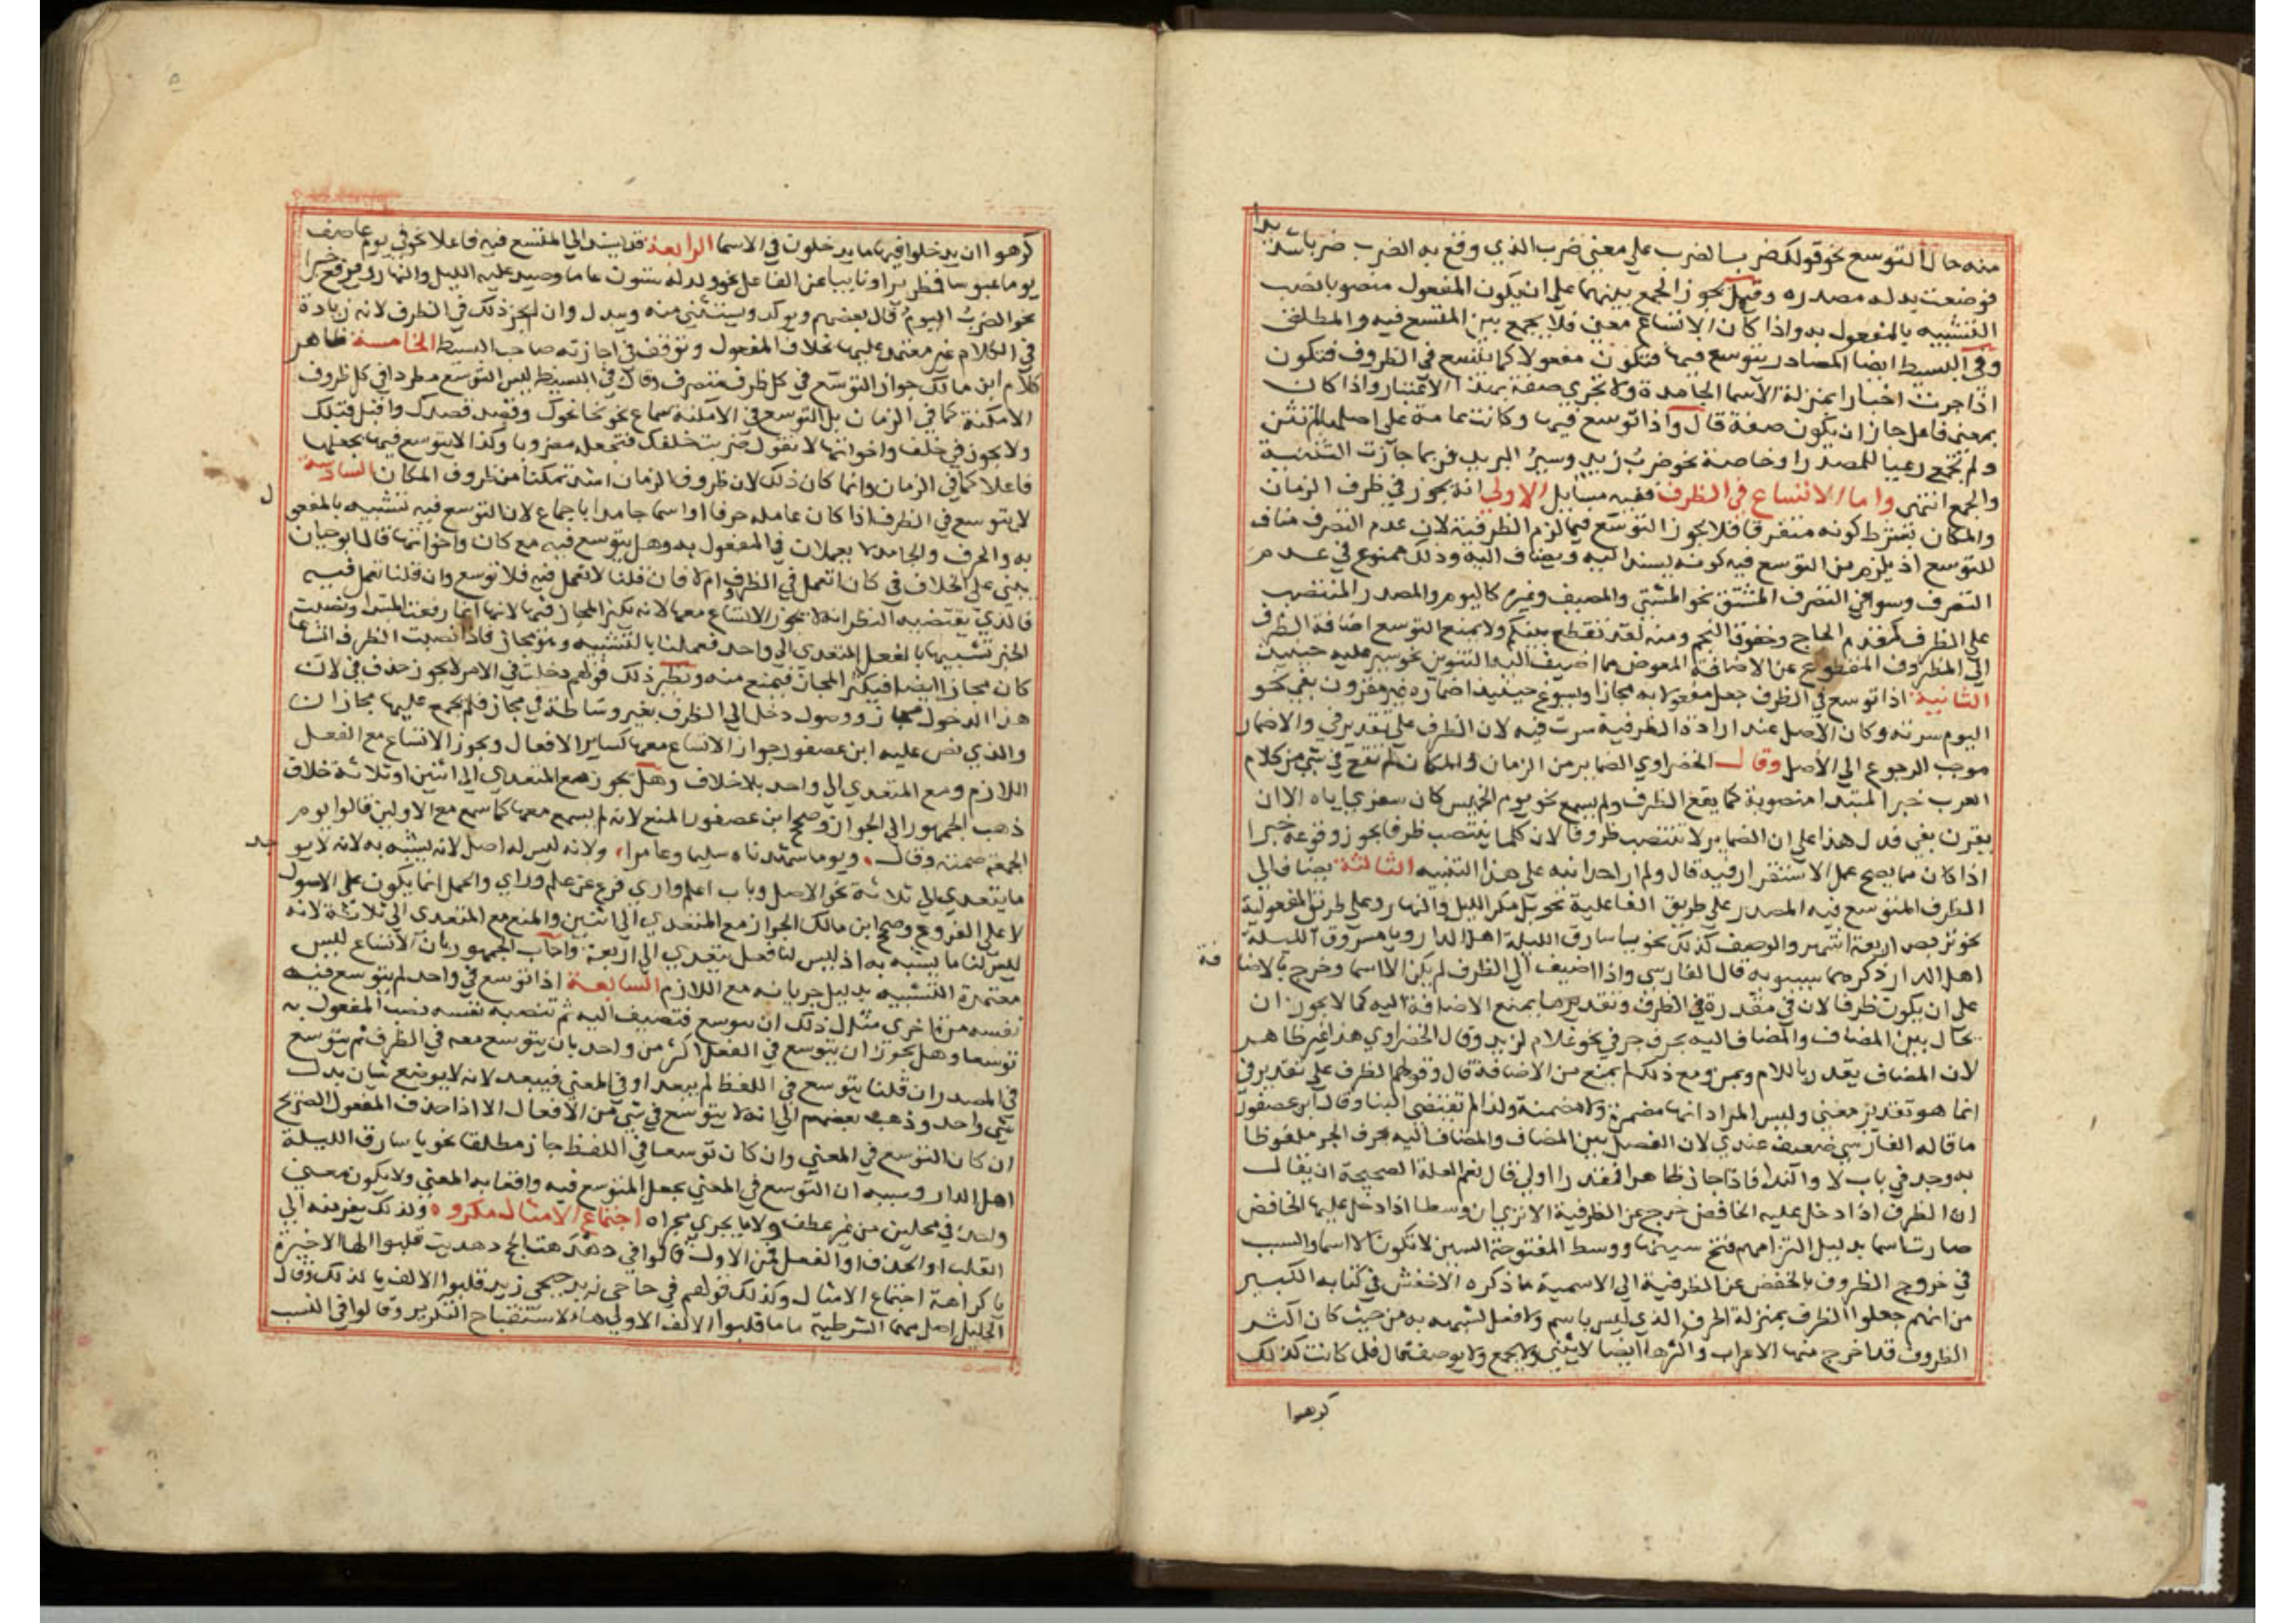 منه حال التوسع نحو قولك ضرب الضرب علي معني ضرب الذي وقع به الضرب ضربا شديدا
فوضعت بدله مصدره وقيل يجوز الجمع بينهما علي ان يكون المفعول منصوبا نصب
التشبيه بالمفعول به واذا كان الاتساع معني فلا يجمع بين المتسع فيه والمطلق
وفي البسيط ايضا المصادر يتوسع فيها فتكون مفعولا كما يتسع في الظروف فتكون
اذا جرت اخبارا بمنزلة الاسما الجامدة ولا تجري صفة بهذا الاعتبار واذا كان
بمعني فاعل جاز ان يكون صفة قال واذا توسع فيها وكانت عامة علي اصلها لم تثن
ولم تجمع رعيا للمصدر او خاصة نحو ضرب زيد وسير البريد فربما جازت التثنية
والجمع انتهي واما الاتساع في الظرف ففيه مسايل الاولي انه يجوز في ظرف الزمان
والمكان بشرط كونه متصرفا فلا يجوز التوسع فيما لزم الظرفية لان عدم التصرف مناف
للتوسع اذ يلزم من التوسع فيه كونه يسند اليه ويضاف اليه وذلك ممنوع في عدم
التصرف وسوا في التصرف المشتق نحو المشتي والمصيف وغيره كاليوم والمصدر المنتصب
علي الظرف كمقدم الحاج وخفوق النجم ومنه لقد تقطع بينكم ولا يمنع التوسع اضافة الظرف
الي المظروف المقطوع عن الاضافة المعوض مما اضيف اليه التنوين نحو سير عليه حينيذ
الثانية اذا توسع في الظرف جعل مفعولا به مجازا ويسوغ حينيذ اضماره غير مقرون بفي نحو
اليوم سرته وكان الاصل عند ارادة الظرفية سرت فيه لان الظرف علي تقدير في والاضمار
موجب الرجوع الي الاصل وقال الخضراوي الضماير من الزمان والمكان لم تقع في شي من كلام
العرب خبرا للمبتدا منصوبة كما يقع الظرف ولم يسمع نحو يوم الخميس كان سفري اياه الا ان
يقرن بفي فدل هذا علي ان الضماير لا تنتصب ظروفا لان كلما ينتصب ظرفا يجوز وقوعه خبرا
اذا كان مما يصح عمل الاستقرار فيه قال ولم ار احدا نبه علي هذا التنبيه الثالثة يضاف الي
الظرف المتوسع فيه المصدر علي طريق الفاعلية نحو بل مكر الليل والنهار وعلي طريق المفعولية
نحو تربص اربعة اشهر والوصف كذلك نحو يا سارق الليلة اهل الدار ويا مسروق الليلة
اهل الدار ذكرهما سيبويه قال الفارسي واذا اضيف الي الظرف لم يكن الا اسما وخرج بالاضافة
علي ان يكون ظرفا لان في مقدرة في الظرف وتقديرها يمنع الاضافة اليه كما لا يجوز ان
يحال بين المضاف والمضاف اليه بحرف جر في نحو غلام لزيد وقال الخضراوي هذا غير ظاهر
لان المضاف يقدر باللام وبمن ومع ذلك لم يمنع من الاضافة قال وقولهم الظرف علي تقدير في
انما هو تقدير معني وليس المراد انها مضمرة ولا مضمنة ولذا لم تقتضي البنا وقال ابن عصفور
ما قاله الفارسي ضعيف عندي لان الفصل بين المضاف والمضاف اليه بحرف الجر ملفوظا
به وجد في باب لا والندا فاذا جاز ظاهرا فمقدرا اولي قال نعم العلة الصحيحة ان يقال
ان الظرف اذا دخل عليه الخافض خرج عن الظرفية الا تري ان وسطا اذا دخل عليها الخافض
صارت اسما بدليل التزامهم فتح سينها ووسط المفتوحة السين لا تكون الا اسما والسبب
في خروج الظروف بالخفض عن الظرفية الي الاسمية ما ذكره الاخفش في كتابه الكبير
من انهم جعلوا الظرف بمنزلة الحرف الذي ليس باسم ولا فعل لشبهه به من حيث كان اكثر
الظروف قد اخرج منها الاعراب واكثرها ايضا لا يثني ولا يجمع ولا يوصف قال فلما كانت كذلك
كرهوا
كرهوا ان يدخلوا فيها ما يدخلون في الاسما الرابعة قد يسند الي المتسع فيه فاعلا نحو في يوم عاصف
يوما عبوسا قمطريرا او نايبا عن الفاعل نحو ولد له ستون عاما وصيد عليه الليل والنهار ويرفع خبرا
نحو الضرب اليوم قال بعضهم ويوكد ويستثني منه ويبدل وان لم يجز ذلك في الظرف لانه زيادة
في الكلام غير معتمد عليها بخلاف المفعول وتوقف في اجازته صاحب البسيط الخامسة ظاهر
كلام ابن مالك جواز التوسع في كل ظرف متصرف وقال في البسيط ليس التوسع مطردا في كل ظروف
الامكنة كما في الزمان بل التوسع في الامكنة سماع نحو نحا نحوك وقصد قصدك واقبل قبلك
ولا يجوز في خلف واخواتها لا تقول ضربت خلفك فتجعله مضروبا وكذا لا يتوسع فيها بجعلها
فاعلا كما في الزمان وانما كان ذلك لان ظروف الزمان اشد تمكنا من ظروف المكان السادسة
لا يتوسع في الظرف اذا كان عامله حرفا او اسما جامدا باجماع لان التوسع فيه تشبيه بالمفعول
به والحرف والجامد لا يعملان في المفعول به وهل يتوسع فيه مع كان واخواتها قال ابو حيان
يبني علي الخلاف في كان اتعمل في الظرف ام لا فان قلنا لا تعمل فيه فلا توسع وان قلنا تعمل فيه
فالذي يقتضيه النظر انه لا يجوز الاتساع معها لانه يكثر المجاز فيها لانها انما رفعت المبتدا ونصبت
الخبر تشبيها بالفعل المتعدي الي واحد فعملها بالتشبيه وهو مجاز فاذا نصبت الظرف اتساعا
كان مجازا ايضا فيكثر المجاز فيمنع منه ونظير ذلك قولهم دخلت في الامر لا يجوز حذف في لان
هذا الدخول مجاز ووصول دخل الي الظرف بغير وساطة في مجاز فلم يجمع عليها مجازان
والذي نص عليه ابن عصفور جواز الاتساع معها كساير الافعال ويجوز الاتساع مع الفعل
اللازم ومع المتعدي الي واحد بلا خلاف وهل يجوز مع المتعدي الي اثنين او ثلاثة خلاف
ذهب الجمهور الي الجواز وصحح ابن عصفور المنع لانه لم يسمع معها كما سمع مع الاولين قالوا يوم
الجمعة صمته وقال ويوما شهدناه سليما وعامرا ولانه ليس له اصل لانه يشبه به لانه لا يوجد
ما يتعدي الي ثلاثة نحو الاصل وباب اعلم واري فرع عن علم وراي والحمل انما يكون علي الاصول
لا علي الفروع وصحح ابن مالك الجواز مع المتعدي الي اثنين والمنع مع المتعدي الي ثلاثة لانه
ليس لنا ما يشبه به اذ ليس لنا فعل يتعدي الي اربعة واجاب الجمهور بان الاتساع ليس
معتمده التشبيه بدليل جريانه مع اللازم السابعة اذا توسع في واحد لم يتوسع فيه
نفسه مرة اخري مثال ذلك ان يتوسع فتضيف اليه ثم تنصبه نفسه نصب المفعول به
توسعا وهل يجوز ان يتوسع في الفعل اكثر من واحد بان يتوسع معه في الظرف ثم يتوسع
في المصدر ان قلنا يتوسع في اللفظ لم يبعد او في المعني فيبعد لانه لا يوضع شيان بدل
شي واحد وذهب بعضهم الي انه لا يتوسع في شي من الافعال الا اذا حذف المفعول الصريح
ان كان التوسع في المعني وان كان توسعا في اللفظ جاز مطلقا نحو يا سارق الليلة
اهل الدار وسببه ان التوسع في المعني يجعل المتوسع فيه واقعا به المعني ولا يكون معني
واحد في محلين من غير عطف ولا ما يجري مجراه اجتماع الامثال مكروه ولذلك يفر منه الي
القلب او الحذف او الفصل فمن الاول قالوا في دهده الحجر دهديت قلبوا الها الاخيرة
يا كراهة اجتماع الامثال وكذلك قولهم في حاحي زيد حيحي زيد قلبوا الالف يا لذلك وقال
الخليل اصل مهما الشرطية ما ما قلبوا الالف الاولي هاء لاستقباح التكرير وقالوا في النسب